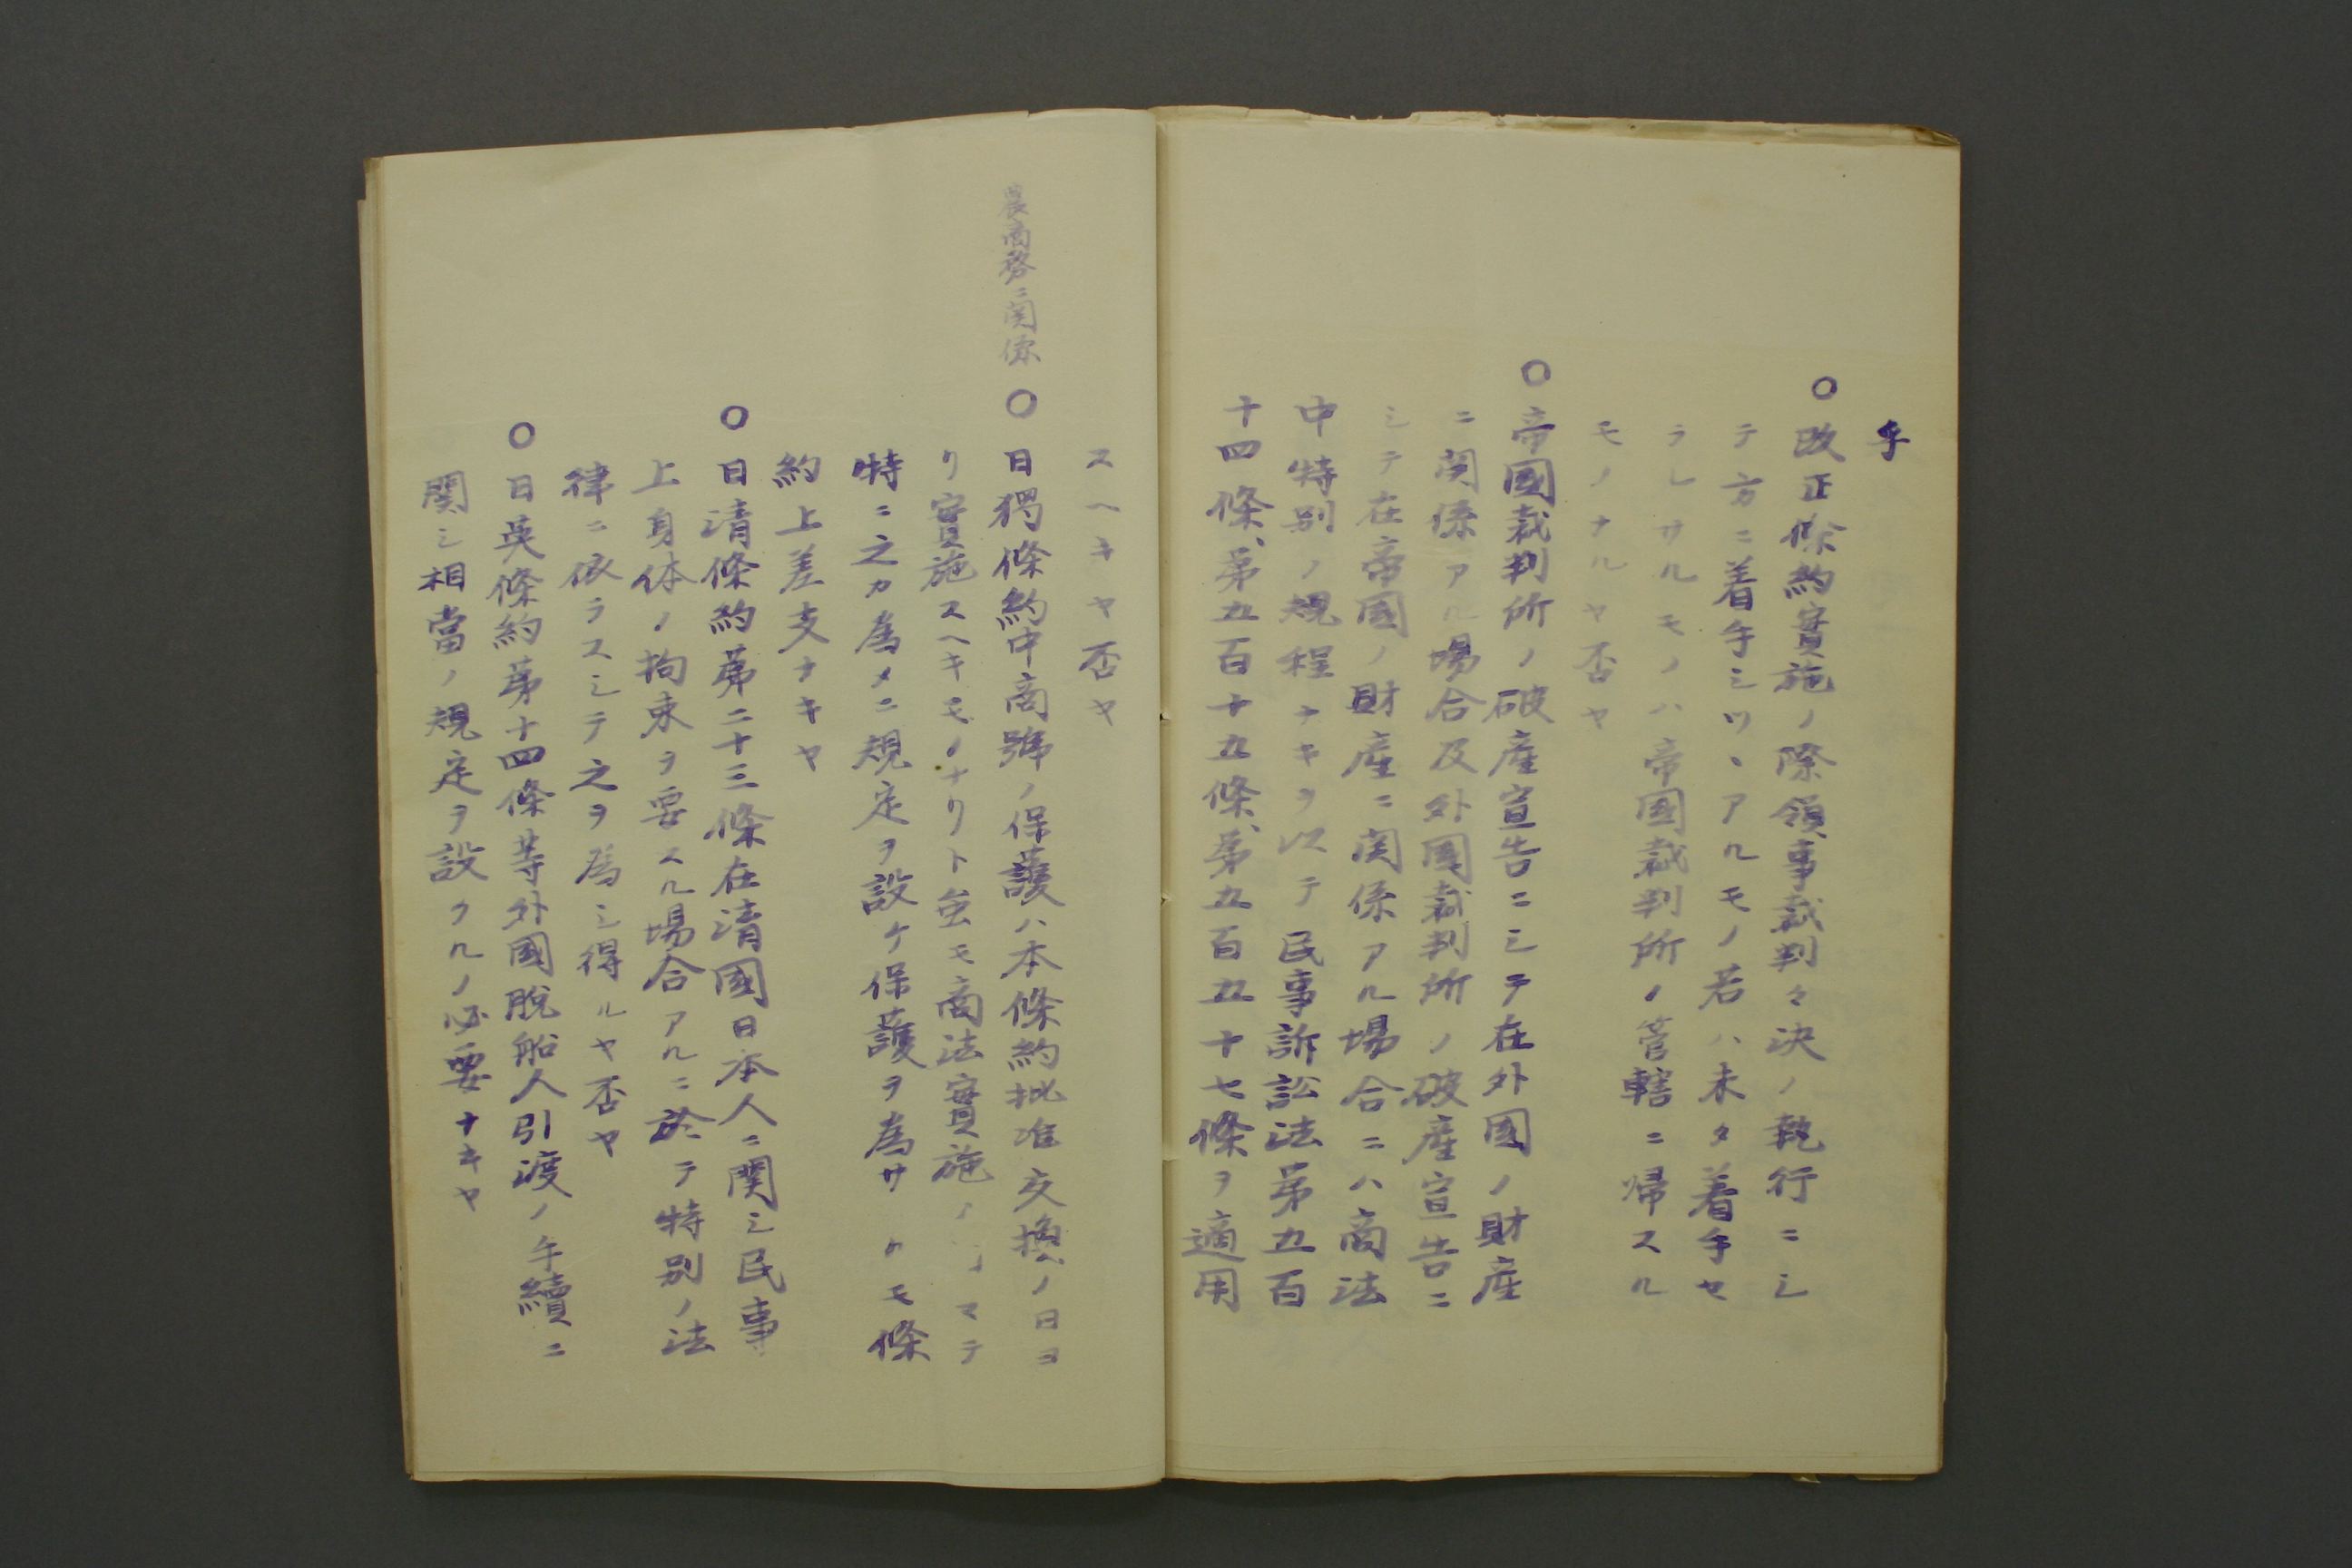 乎
○改正條約實施ノ際領事裁判々決ノ執行ニシ
テ方ニ着手シツヽアルモノ若ハ未タ着手セ
ラレサルモノハ帝國裁判所ノ管轄ニ帰スル
モノナルヤ否ヤ
○帝國裁判所ノ破産宣告ニシテ在外國ノ財産
ニ関係アル場合及外國裁判所ノ破産宣告ニ
シテ在帝國ノ財産ニ関係アル場合ニハ商法
中特別ノ規程ナキヲ以テ民事訴訟法第五百
十四條、第五百十五條、第五百五十七條ヲ適用
スヘキヤ否ヤ
農商務ニ関係
○日獨條約中商號ノ保護ハ本條約批准交換ノ日ヨ
リ實施スヘキモノナリト雖モ商法實施 マテ
特ニ之カ為メニ規定ヲ設ケ保護ヲ為サ モ條
約上差支ナキヤ
○日清條約第二十三條在清國日本人ニ関シ民事
上身体ノ拘束ヲ要スル場合アルニ於テ特別ノ法
律ニ依ラスシテ之ヲ為シ得ルヤ否ヤ
○日英條約第十四條等外國脱船人引渡ノ手續ニ
関シ相當ノ規定ヲ設クルノ必要ナキヤ